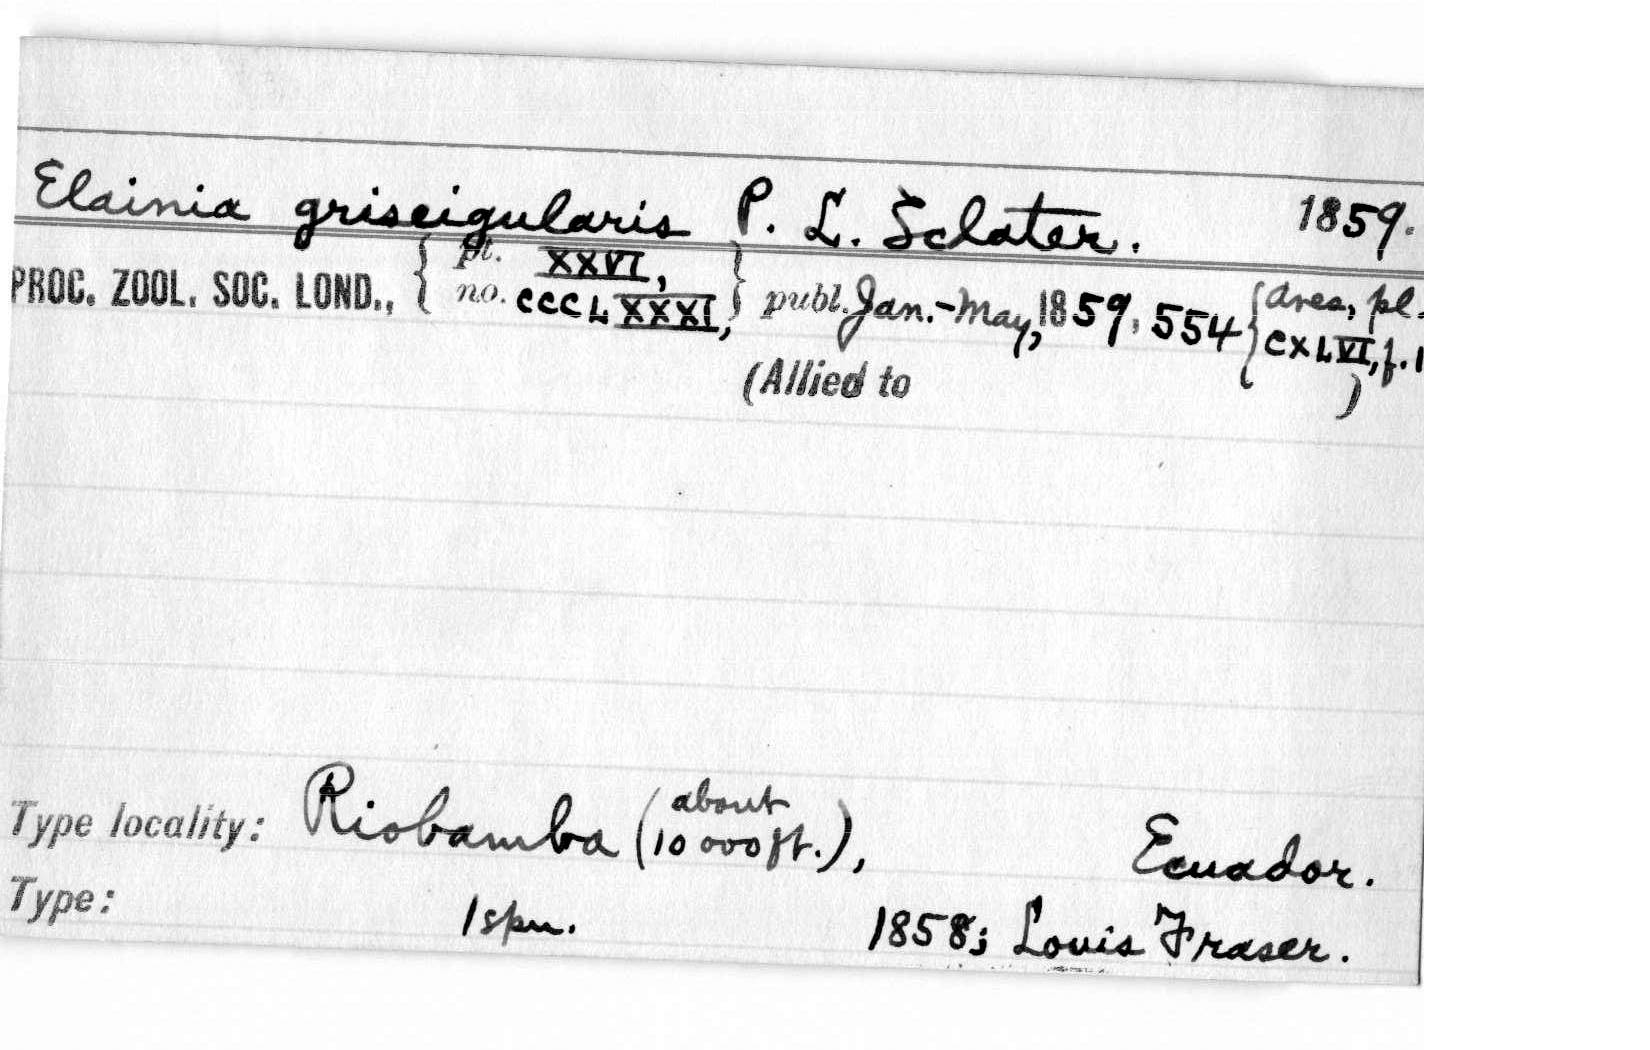 Elainia griseigularis P. L. Sclater. 1859.
PROC. ZOOL. SOC. LOND., { pt. XXVI, no. CCCLXXXI, } publ. Jan.-May, 1859, 554 { Aves, pl. CXLVI, f. 1
(Allied to )
Type locality: Riobamba (about 10 000 ft.), Ecuador.
Type: 1 spm. 1858; Louis Fraser.